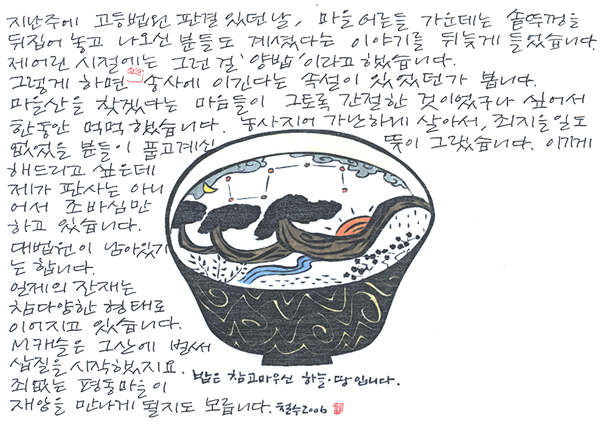 지난주에 고등법원 판결 있던날, 마을 어른들 가운데는 솥뚜껑을
뒤집어 놓고 나오신 분들도 계셨다는 이야기를 뒤늦게 들었습니다.
제 어린 시절에는 그런걸 '양밥'이라고 했습니다.
그렇게 하면 송사에 이긴다는 속설이 있었던가 봅니다.
마을산을 찾겠다는 마음들이 그토록 간절한 것이었구나 싶어서
한동안 먹먹했습니다. 농사지어 가난하게 살아서, 죄지을 일도
없었을 분들이 품고계신 뜻이 그랬습니다. 이기게
해드리고 싶은데
제가 판사는 아니
어서 조바심만
하고 있습니다.
대법원이 남아있기
는 합니다.
일제의 잔재는
참 다양한 형태로
이어지고 있습니다.
M캐슬은 그산에 벌써
삽질을 시작했지요.
죄없는 평동마을이
재앙을 만나게 될지도 모릅니다. 철수2006
밥은 참 고마우신 하늘·땅입니다.